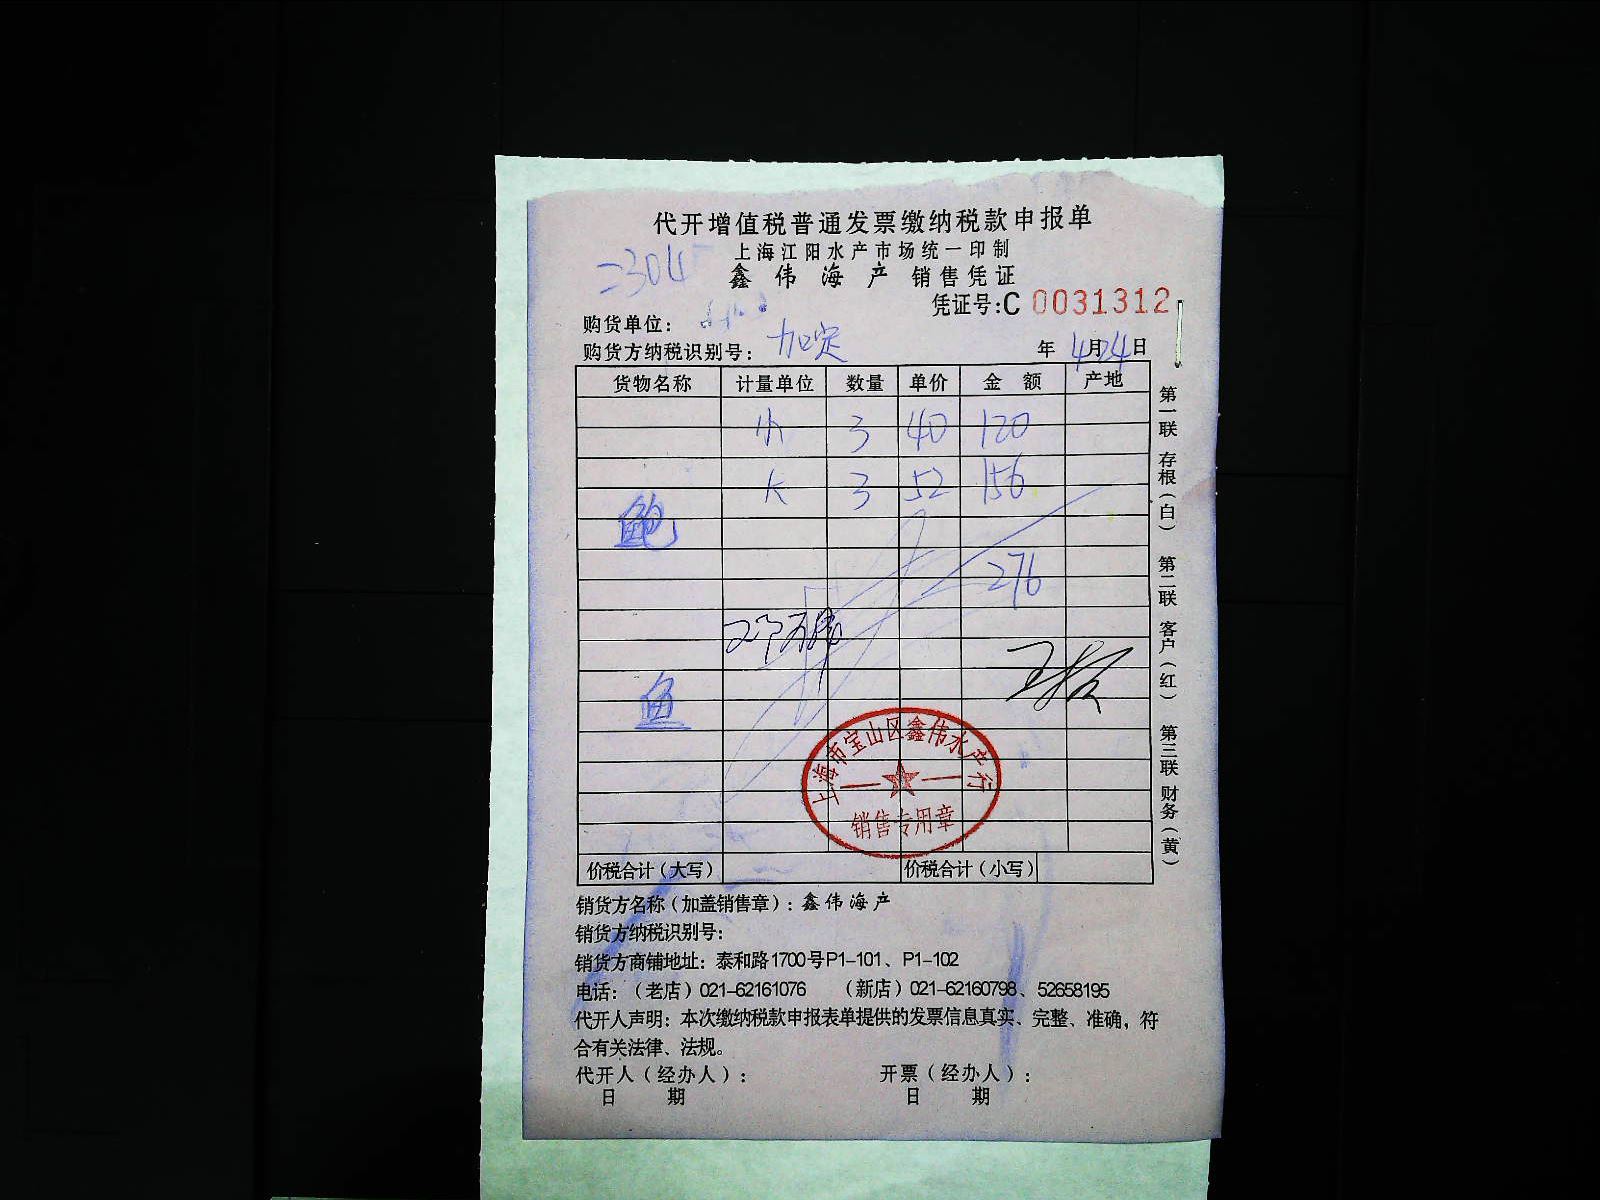 代开增值税普通发票缴纳税款申报单
上海江阳水产市场统一印制
鑫伟海产 销售凭证
凭证号:C 0031312
购货单位:
购货方纳税识别号: 加定 年 4月24日
货物名称 计量单位 数量 单价 金额 产地
小 3 40 120
大 3 52 156
鲍
276
鱼
上海市宝山区鑫伟水产行
销售专用章
价税合计(大写) 价税合计(小写)
销货方名称(加盖销售章):鑫伟海产
销货方纳税识别号:
销货方商铺地址:泰和路1700号P1-101、P1-102
电话:(老店)021-62161076 (新店)021-62160798、52658195
代开人声明:本次缴纳税款申报表单提供的发票信息真实、完整、准确,符
合有关法律、法规。
代开人(经办人): 开票(经办人):
日期 日期
第一联 存根(白) 第二联 客户(红) 第三联 财务(黄)